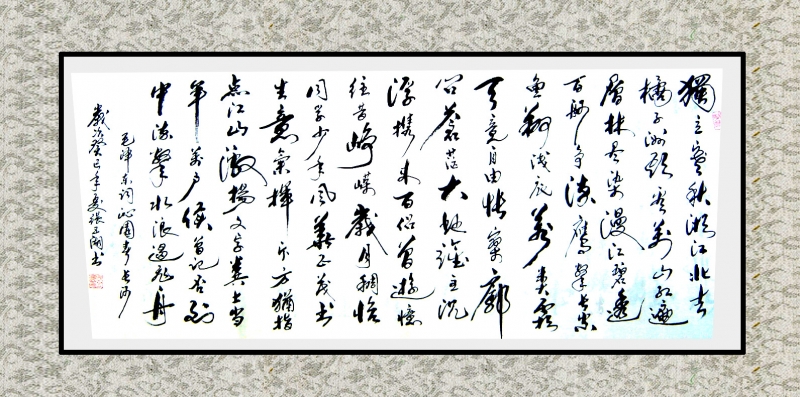 獨立寒秋湘江北去
橘子洲頭看萬山紅遍
層林盡染漫江碧透
百舸爭流鷹擊長空
魚翔淺底萬類霜
天競自由悵寥廓
問蒼茫大地誰主沉
浮攜來百侶曾遊憶
往昔崢嶸歲月稠恰
同學少年風華正茂书
生意氣揮斥方猶指
点江山激揚文字糞土當
年萬户侯曾記否到
中流擊水浪遏飛舟
毛澤东词沁園春長沙
歲次癸巳年夏張书